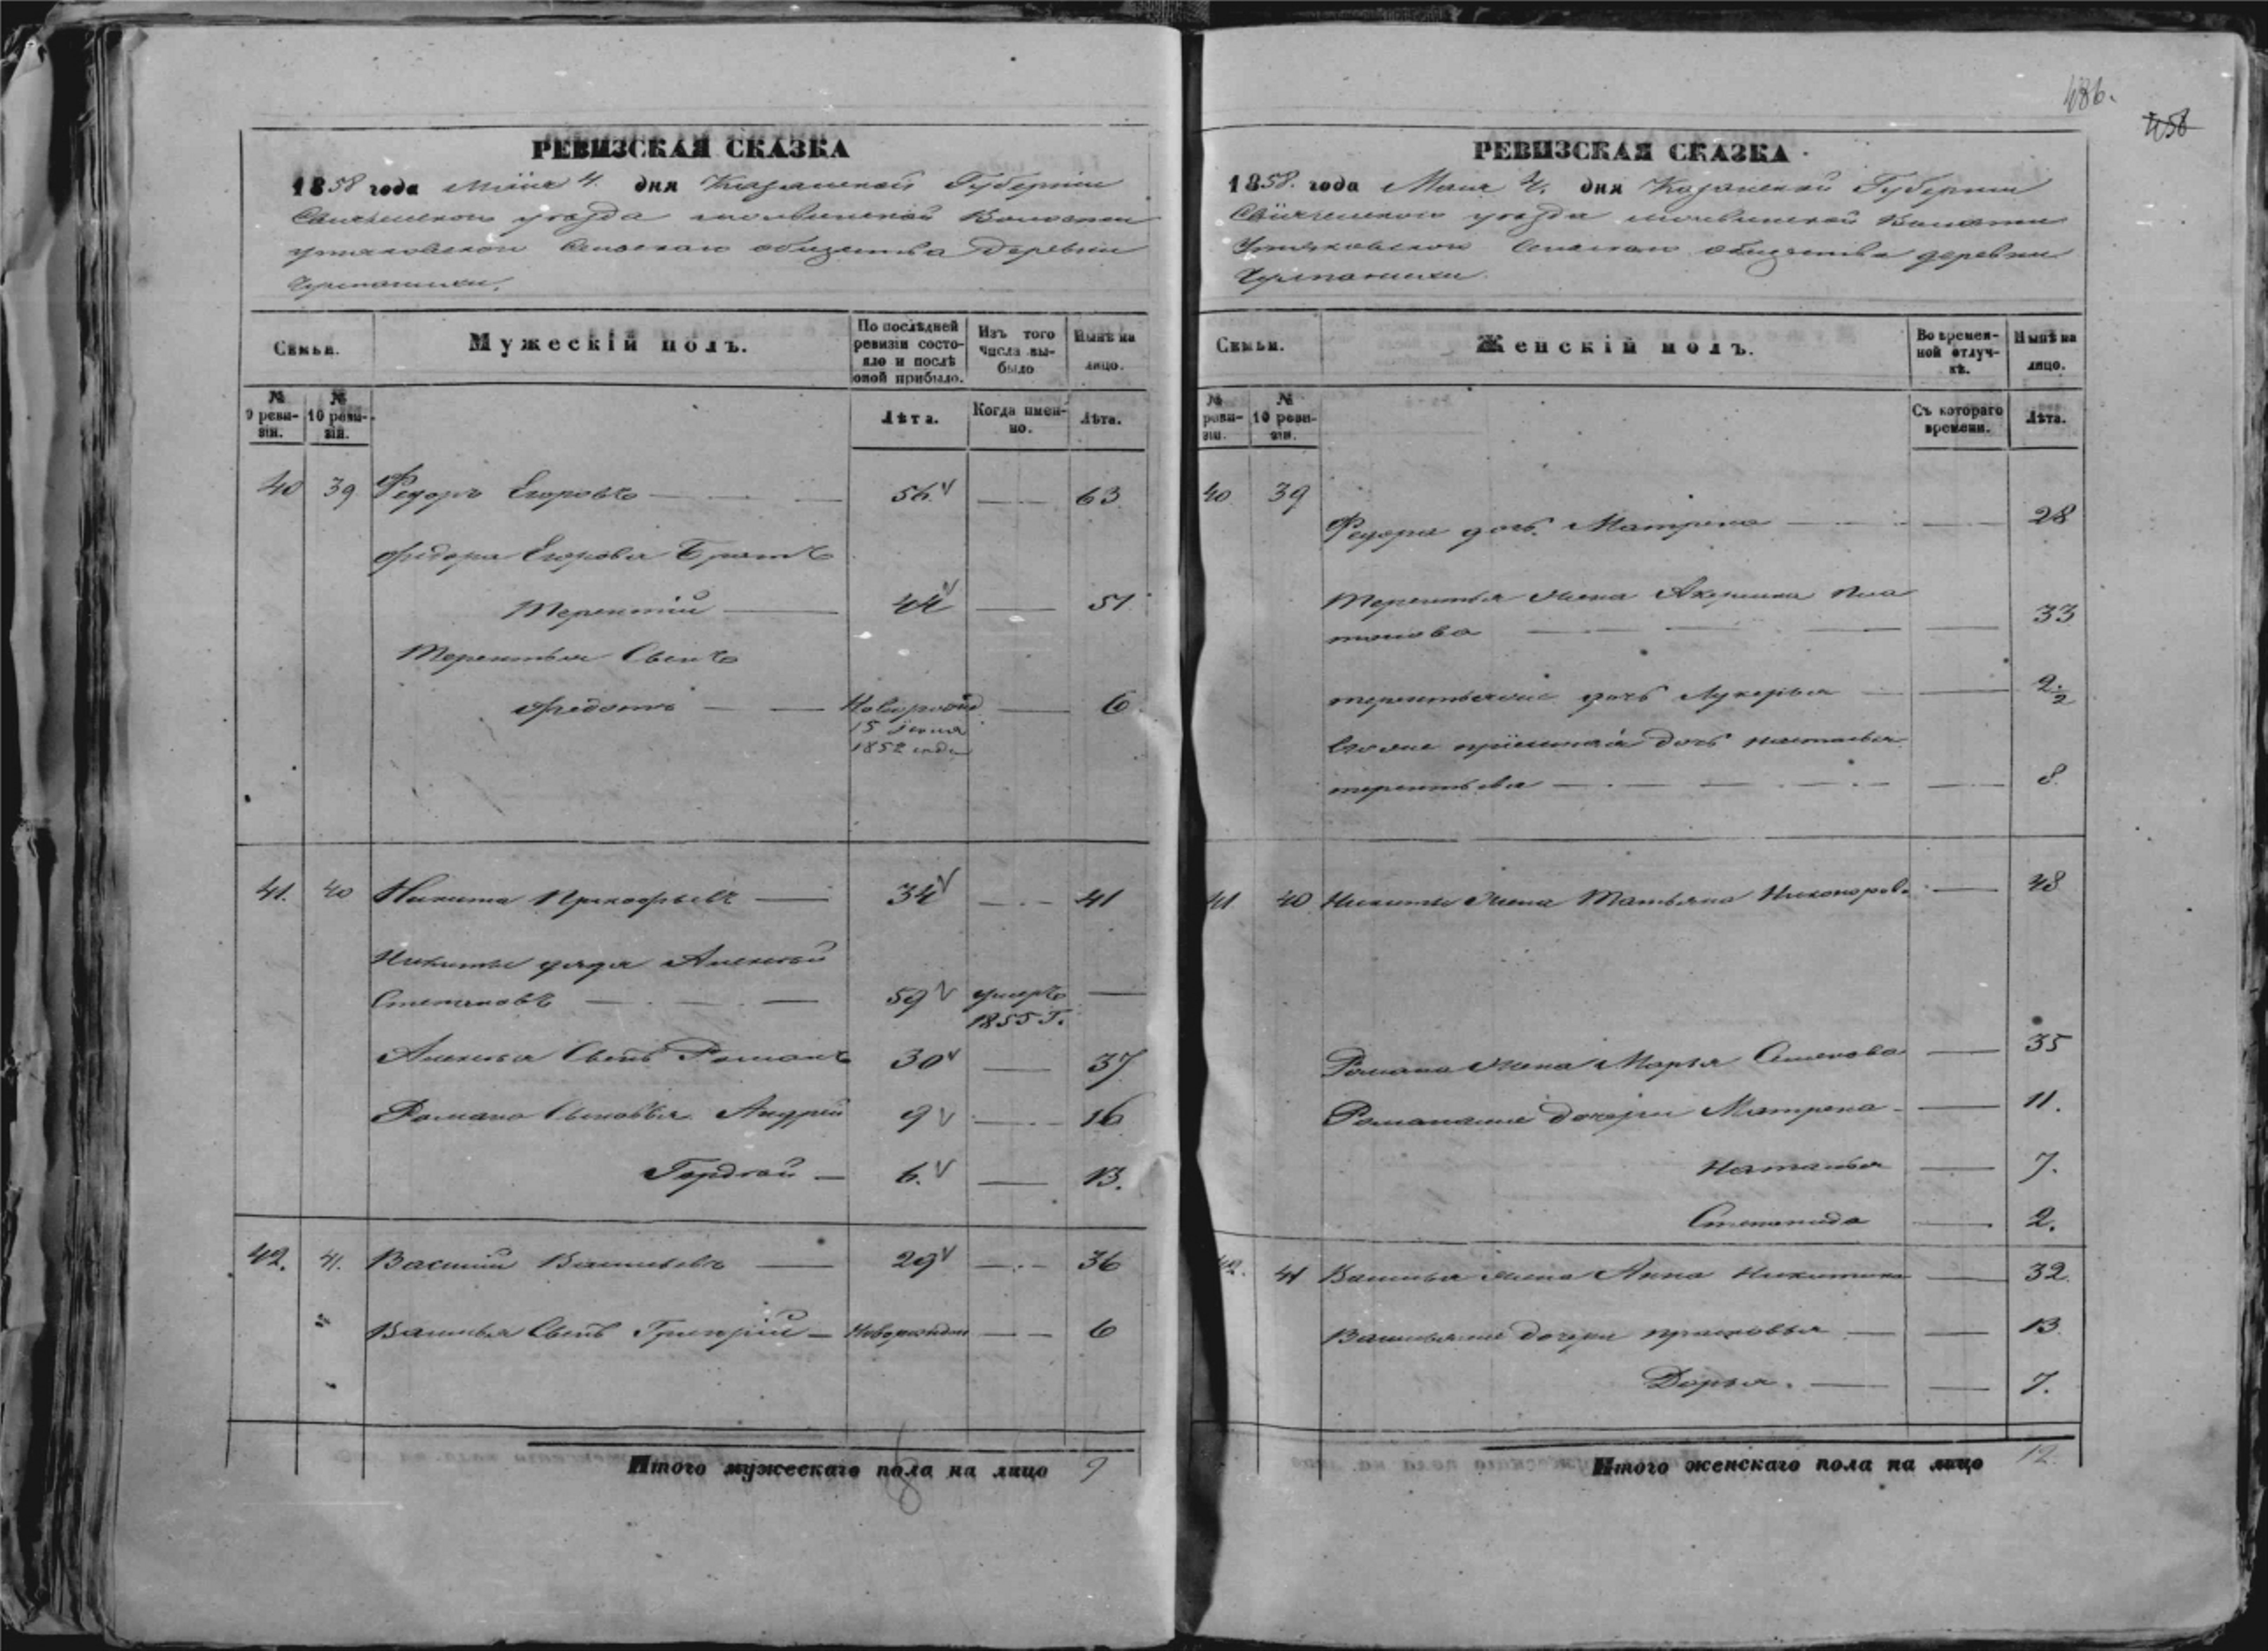 486.
458
РЕВИЗСКАЯ СКАЗКА
1858 года Маія 4. дня Казанской Губерніи
Свіяжскаго уѣзда Волости
Сельскаго общества деревни
РЕВИЗСКАЯ СКАЗКА
1858. года Маія 4. дня Казанской Губерніи
Свіяжскаго уѣзда Волости
Сельскаго общества деревни
Семьи.
Мужескій полъ.
По послѣдней ревизіи состояло и послѣ оной прибыло.
Изъ того числа выбыло
Нынѣ на лицо.
№ 9 ревизіи.
№ 10 ревизіи.
Лѣта.
Когда именно.
Лѣта.
40 39 Федоръ Егоровъ 56 63
Федора Егорова Братъ
Терентій 44 51
Терентья Сынъ
Федотъ Новорожд 6
15 іюня
1852 года
41. 40 Никита Прокофьевъ 34 41
Никиты дядя Алексѣй
Степановъ 59 умеръ
1855 г.
Алексѣя Сынъ Романъ 30 37
Романа Сыновья Андрей 9 16
Гордѣй 6. 13.
42. 41. Василій Васильевъ 29 36
Василья Сынъ Григорій Новорожден 6
Итого мужескаго пола на лицо 9
8
Семьи.
Женскій полъ.
Во временной отлучкѣ.
Нынѣ на лицо.
№ ревизіи.
№ 10 ревизіи.
Съ котораго времени.
Лѣта.
40 39
Федора дочь Матрена 28
Терентья жена Акулина Пла
тонова 33
Терентьева дочь Лукерья 2/2
пріемная дочь Настасья
терентьева 8.
41 40 Никиты жена Татьяна Никонорова 48
Романа жена Марья Семенова 35
Романовы дочери Матрена 11.
Наталья 7.
Степанида 2.
42. 41 Василья жена Анна Никитина 32.
Васильевы дочери прасковья 13.
Дарья. 7.
Итого женскаго пола на лицо 12.